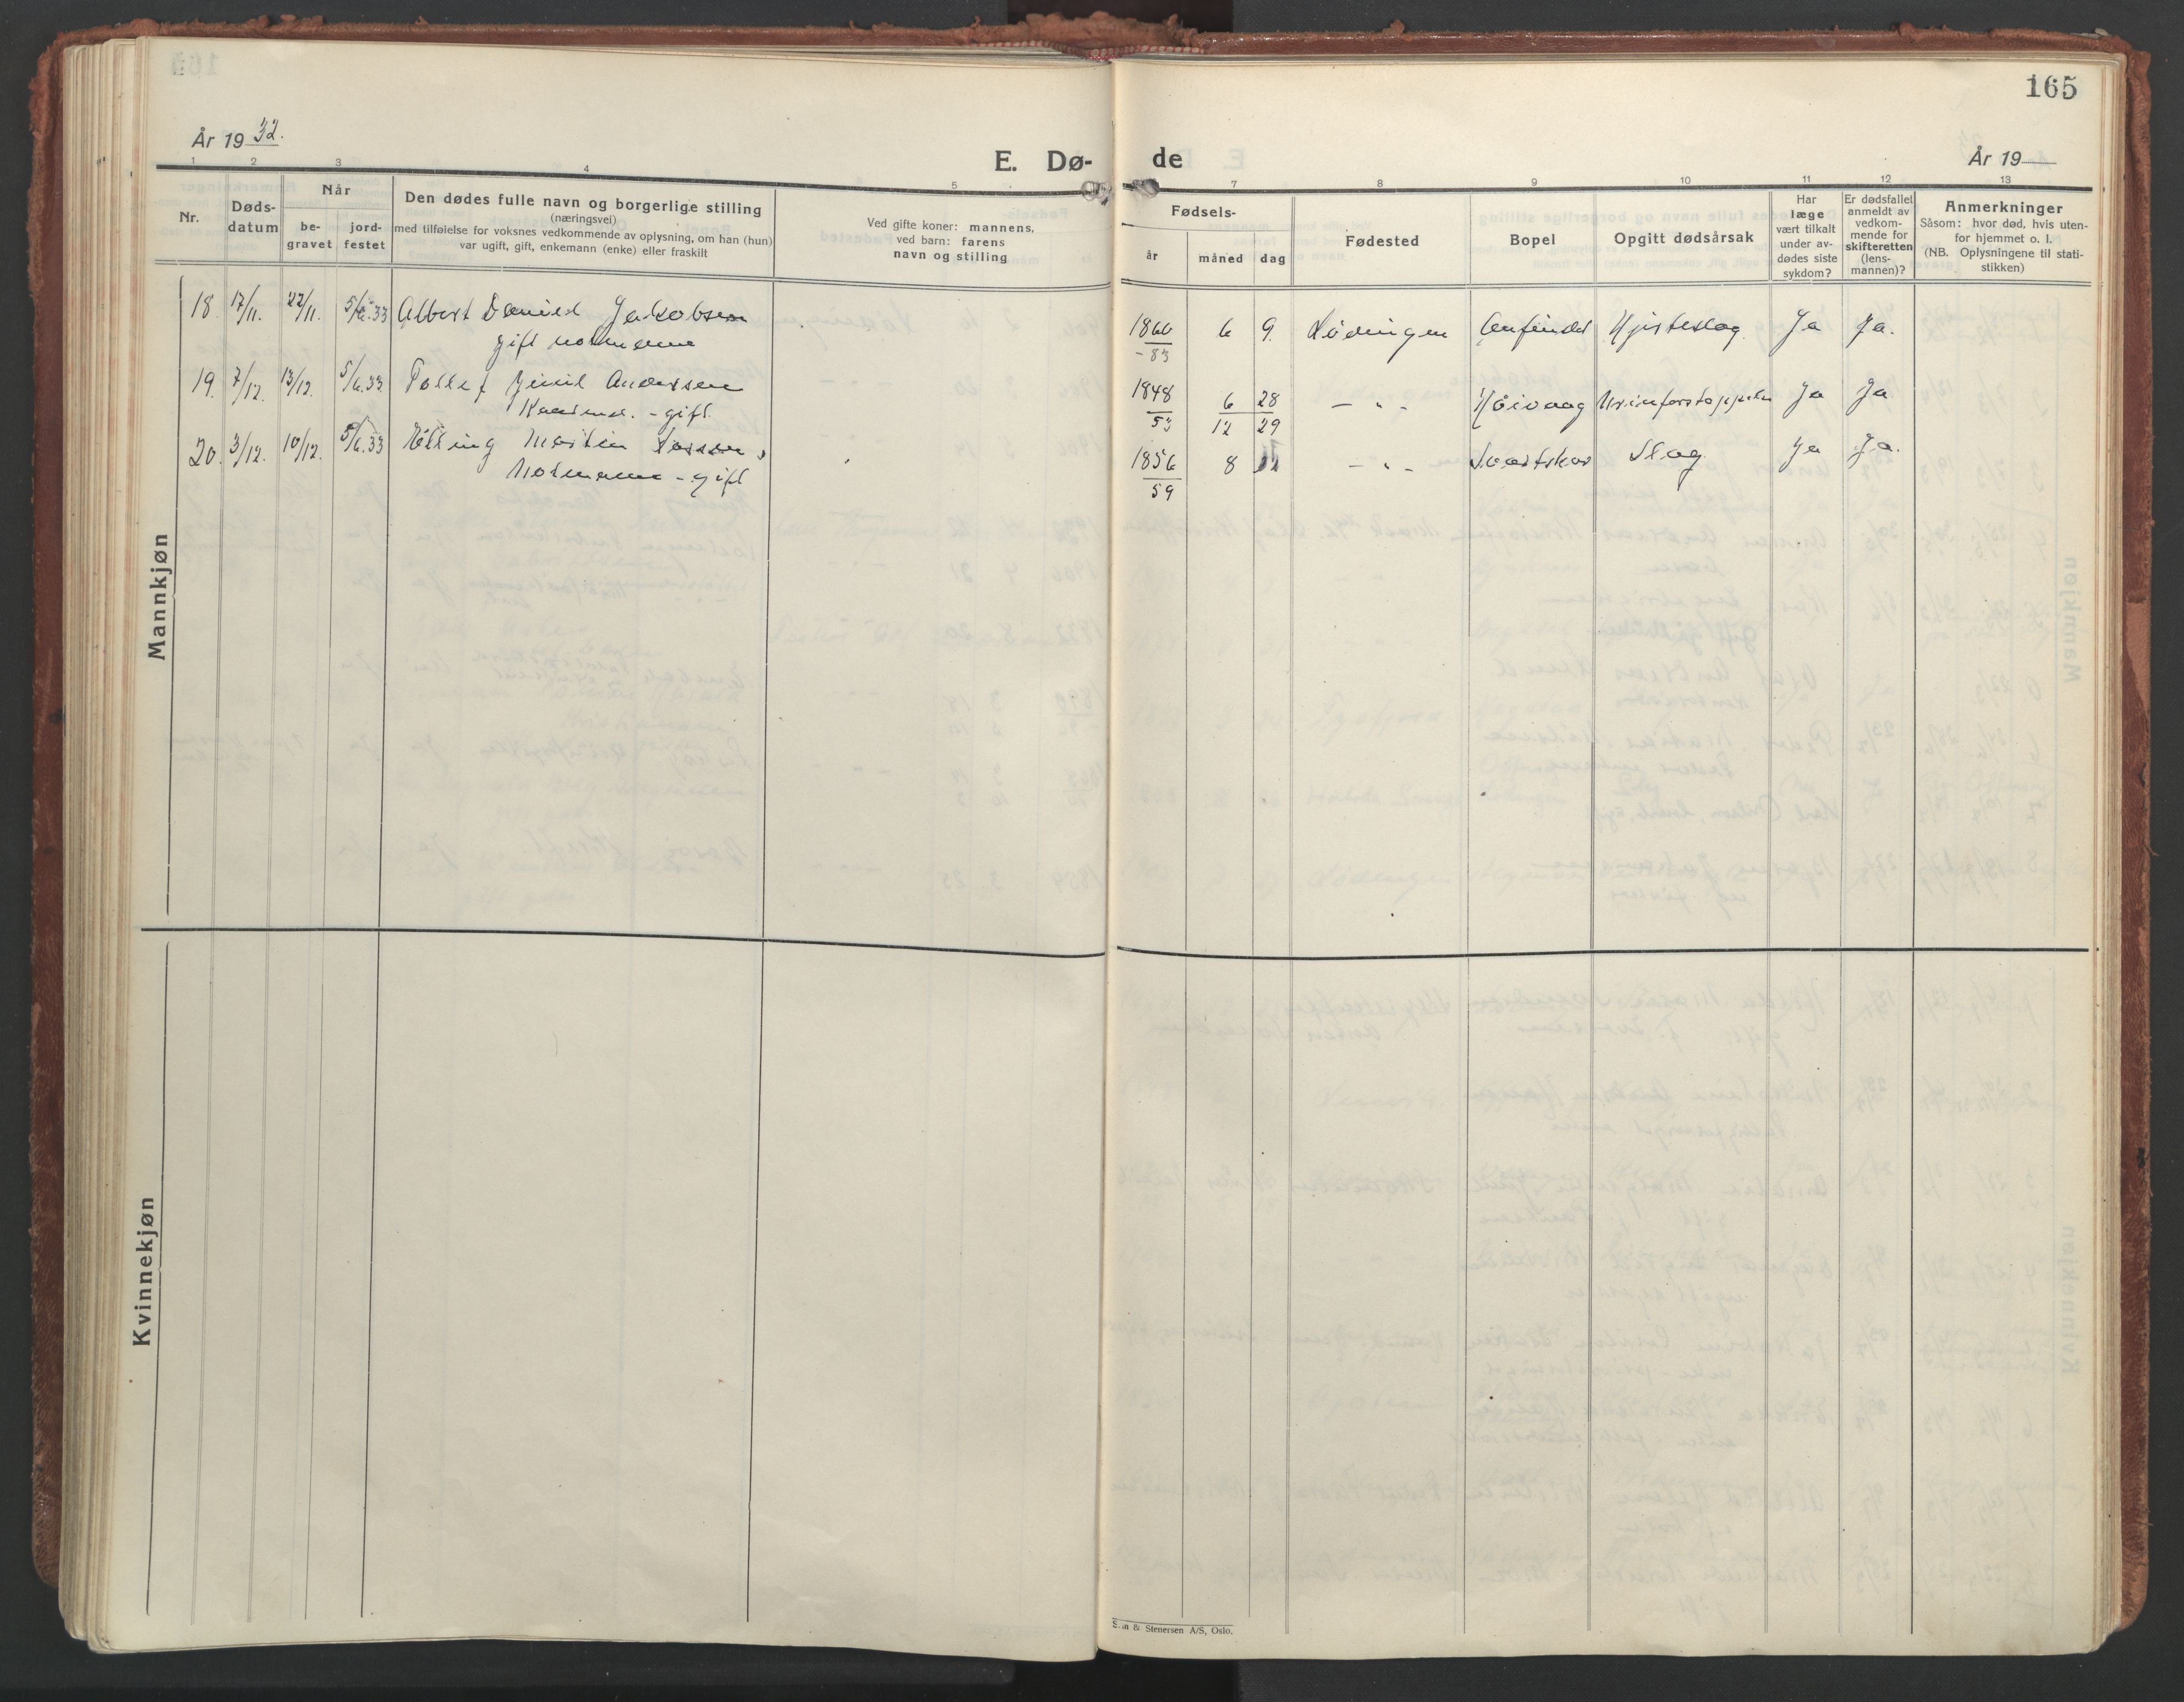 165
År 19 32.
E. Dø-
de
År 19
1 2 3 4 5 7 8 9 10 11 12 13
Nr.
Døds-
datum
Når
be-
gravet
jord-
festet
Den dødes fulle navn og borgerlige stilling
(næringsvei)
med tilføielse for voksnes vedkommende av oplysning, om han (hun)
var ugift, gift, enkemann (enke) eller fraskilt
Ved gifte koner: mannens,
ved barn: farens
navn og stilling
Fødsels-
år
måned
dag
Fødested
Bopel
Opgitt dødsårsak
Har
læge
vært tilkalt
under av-
dødes siste
sykdom?
Er dødsfallet
anmeldt av
vedkom-
mende for
skifteretten
(lens-
mannen)?
Anmerkninger
Såsom: hvor død, hvis uten-
for hjemmet o. l.
(NB. Oplysningene til stati-
stikken)
Mannkjøn
18. 17/11. 22/11. 5/6.33 Albert Daniel Jakobsen 1866 6 9. Lødingen Hjerteslag Ja Ja.
gift nordmann -83
19. 7/12. 13/12. 5/6.33 Tollef Andersen 1848 6 28 - " - Urinforstoppelse Ja Ja
- gift. 53 12 29
20. 3/12. 10/12. 5/6.33 Elling Martin 1856 8 - " - Svartskar Slag Ja Ja.
Nordmann - gift 59
Kvinnekjøn
& Stenersen A/S, Oslo.